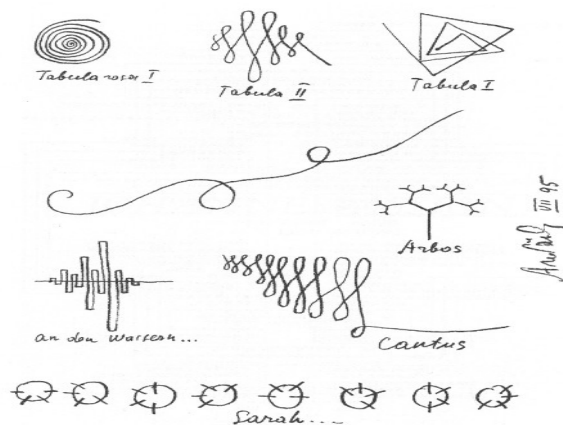 Tabula rasa I
Tabula II
Tabula I
Arbos
VII 95
an den Wassern...
Cantus
Sarah...